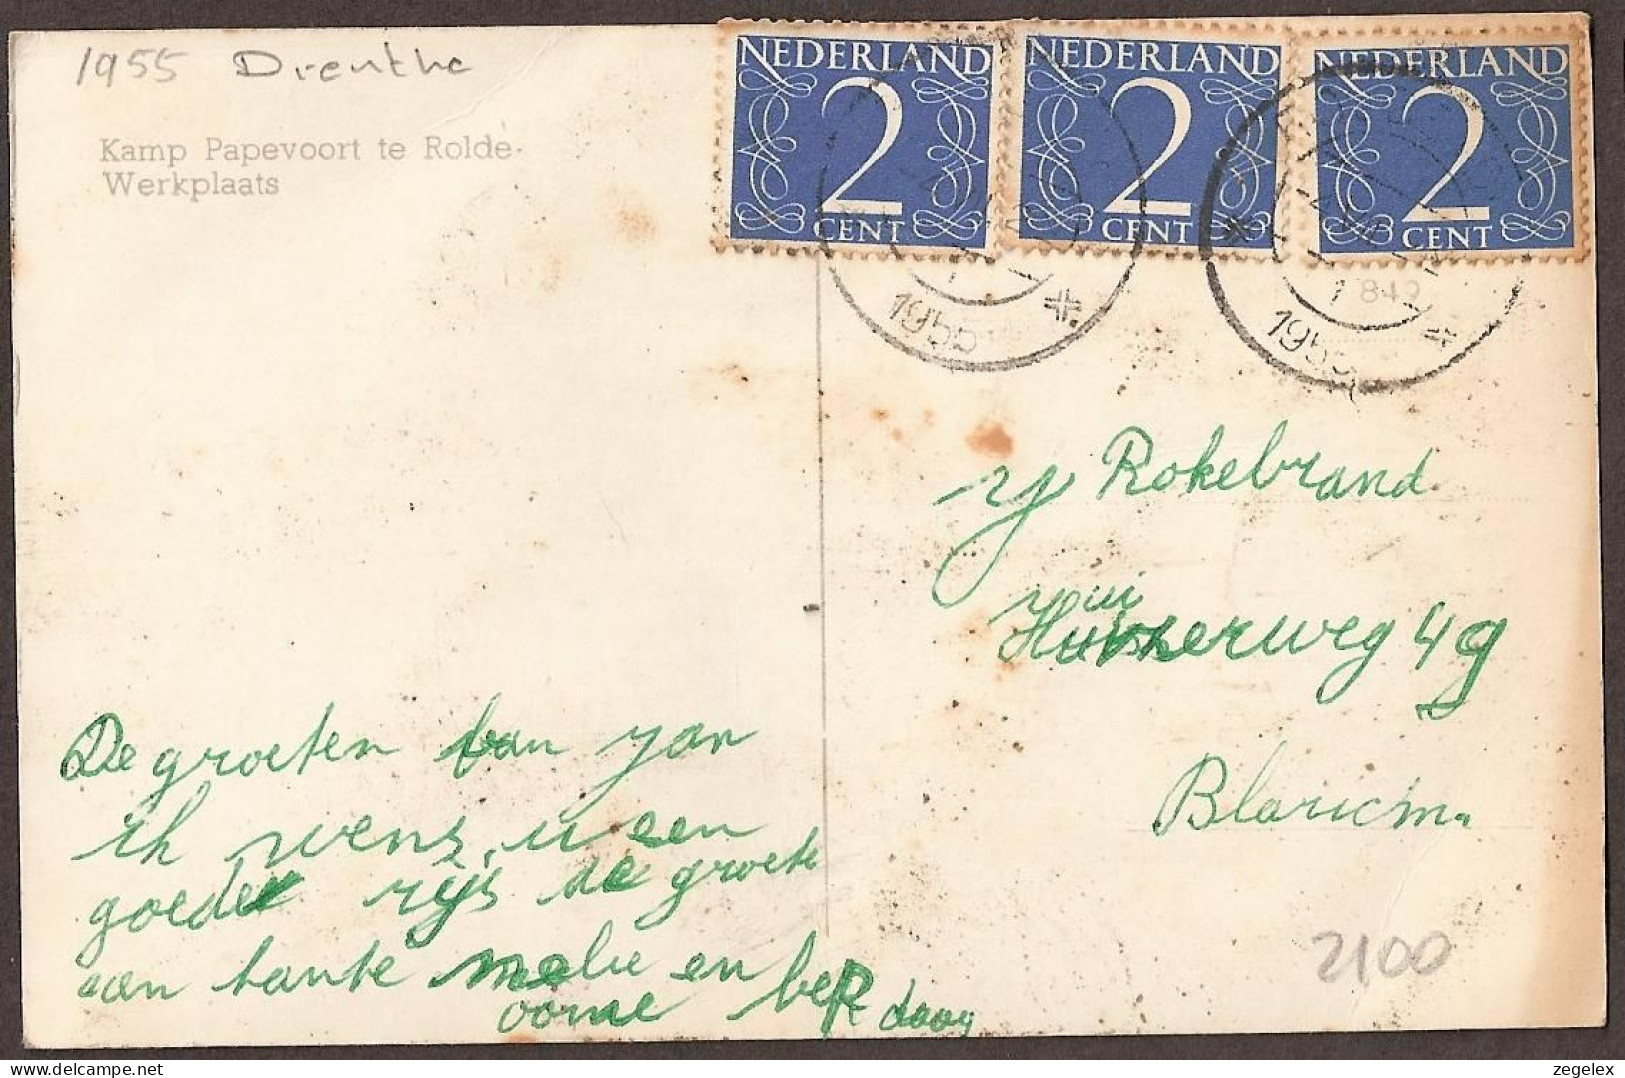 1955 Drenthe
Kamp Papevoort te Rolde.
Werkplaats
NEDERLAND
2
CENT
NEDERLAND
2
CENT
NEDERLAND
2
CENT
1955
1955
Rokebrand
Huizerweg 49
Blaricum
De groeten van Jan
ik wens u een
goede rijs de groete
aan tante melie en
oome bep daag
2100
zegelex